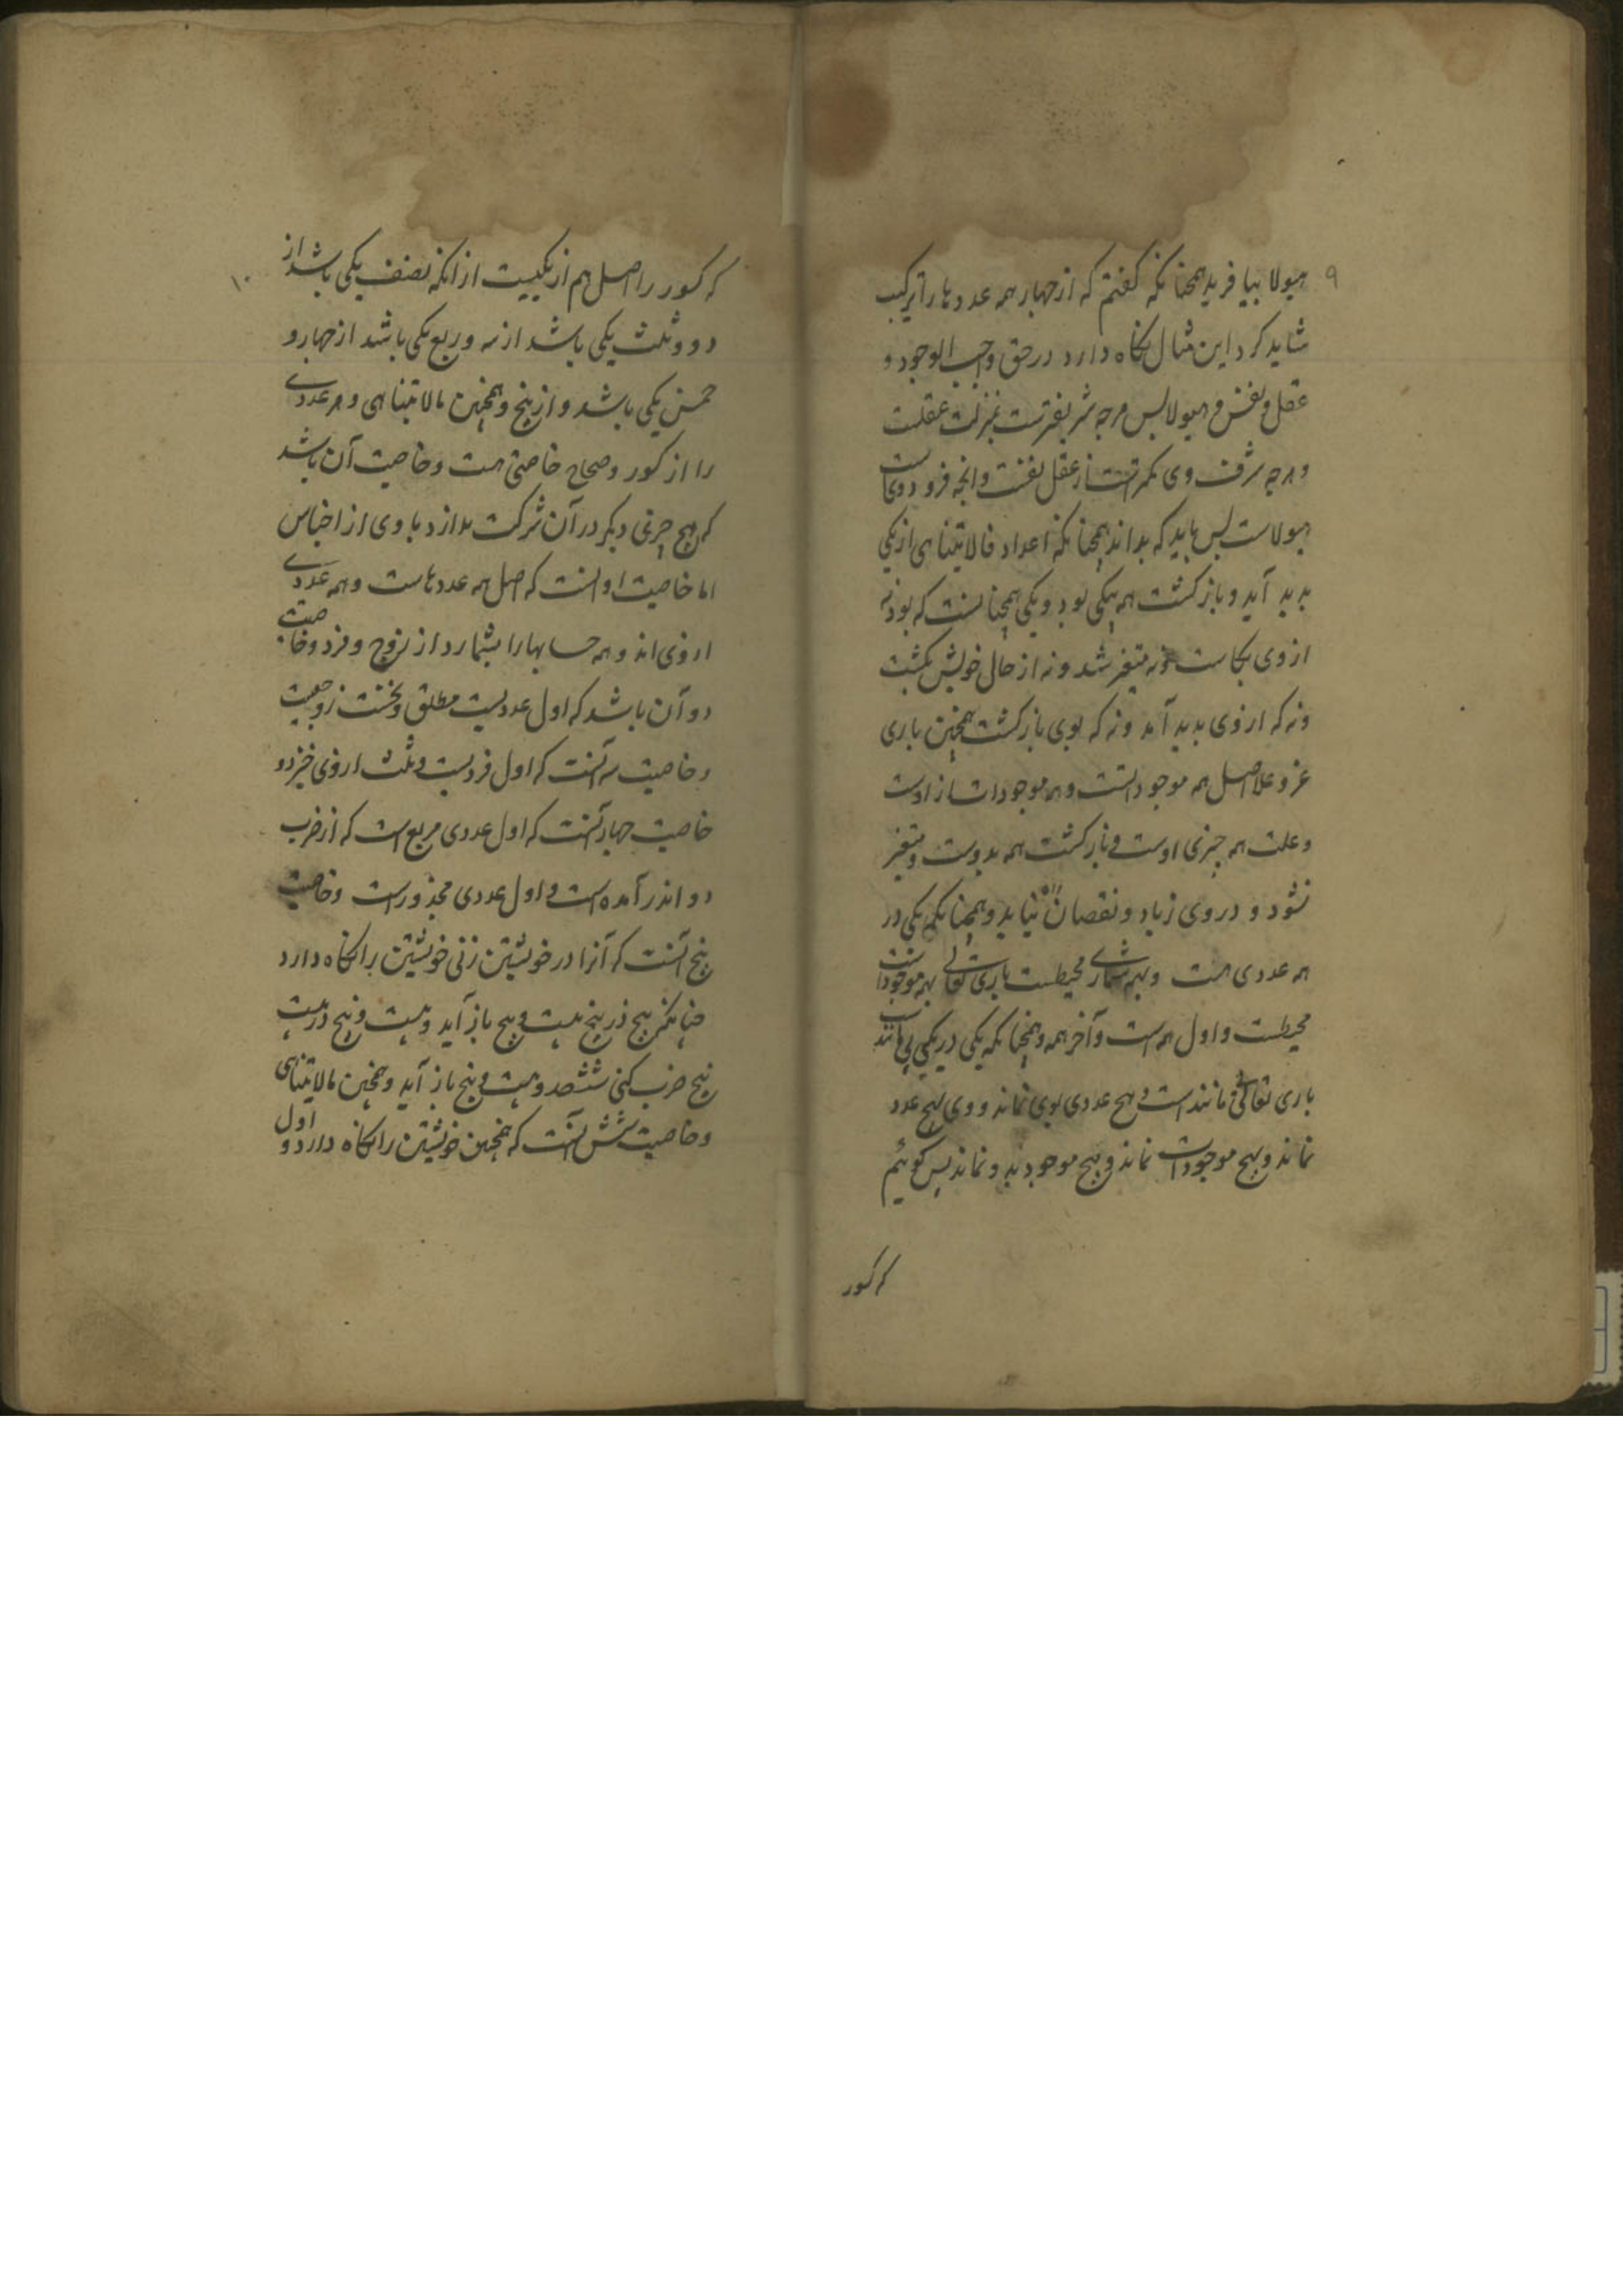 ۹
هیولا بیافرید همچنانکه کفتم که از چهار همه عددها را ترکیب
شاید کرد این مثال نکاه دارد در حق واجب الوجود و
عقل و نفس و هیولا پس هرچه شریفترست بمنزلت عقلست
و هرچه شرف وی کمترست از عقل نفس است وانچه فرود ویست
هیولاست پس باید که بداند همچنانکه اعداد فالایتناهی از یکی
بدید آید و بازکشت همه بیکی بود و یکی همچنانست که بود نه
از وی بکاست و نه متغیر شد و نه از حال خویش بکشت
ونه که ازوی بدید آمد ونه که بوی بازکشت همچنین باری
عز و علا اصل همه موجوداتست وهمه موجودات از اوست
و علت همه چیزی اوست و بازکشت همه بدوست و متغیر
نشود و در وی زیاد و نقصان نیاید و همچنانکه یکی در
همه عددی هست و بهر شماری محیطست باری تعالی بهمه موجودات
محیطست و اول همه است و آخر همه و همچنانکه یکی در یکی بی مانند
باری تعالی بی مانند است و هیچ عددی بوی نماند و وی بهیچ عدد
نماند و بهیچ موجودات نماند و هیچ موجود بدو نماند پس کوئیم
که کسور
۱۰
که کسور را اصل هم از یکیست از انکه نصف یکی باشد از
دو و ثلث یکی باشد از سه و ربع یکی باشد از چهار و
خمس یکی باشد و از پنج و همچنین مالایتناهی و هر عددی
را از کسور و صحاح خاصیتی هست و خاصیت آن باشد
که هیچ چیزی دیکر در آن شرکت ندارد با وی از اجناس
اما خاصیت اول آنست که اصل همه عددهاست و همه عددی
ازوی اند و همه حسابها را بشمارد از زوج و فرد و خاصیت
دو آن باشد که اول عددیست مطلق و نخست زوجیست
و خاصیت سه آنست که اول فردیست و ثلث ازوی خیزد و
خاصیت چهار آنست که اول عددی مربع است که از ضرب
دو اندر آمده است و اول عددی مجذورست و خاصیت
پنج آنست که آنرا در خویشتن زنی خویشتن را نکاه دارد
چنانکه پنج در پنج بیست و پنج باز آید و بیست و پنج در بیست
پنج ضرب کنی ششصد و بیست و پنج باز آید و همچنین مالایتناهی
و خاصیت شش آنست که همچنین خویشتن را نکاه دارد و اول